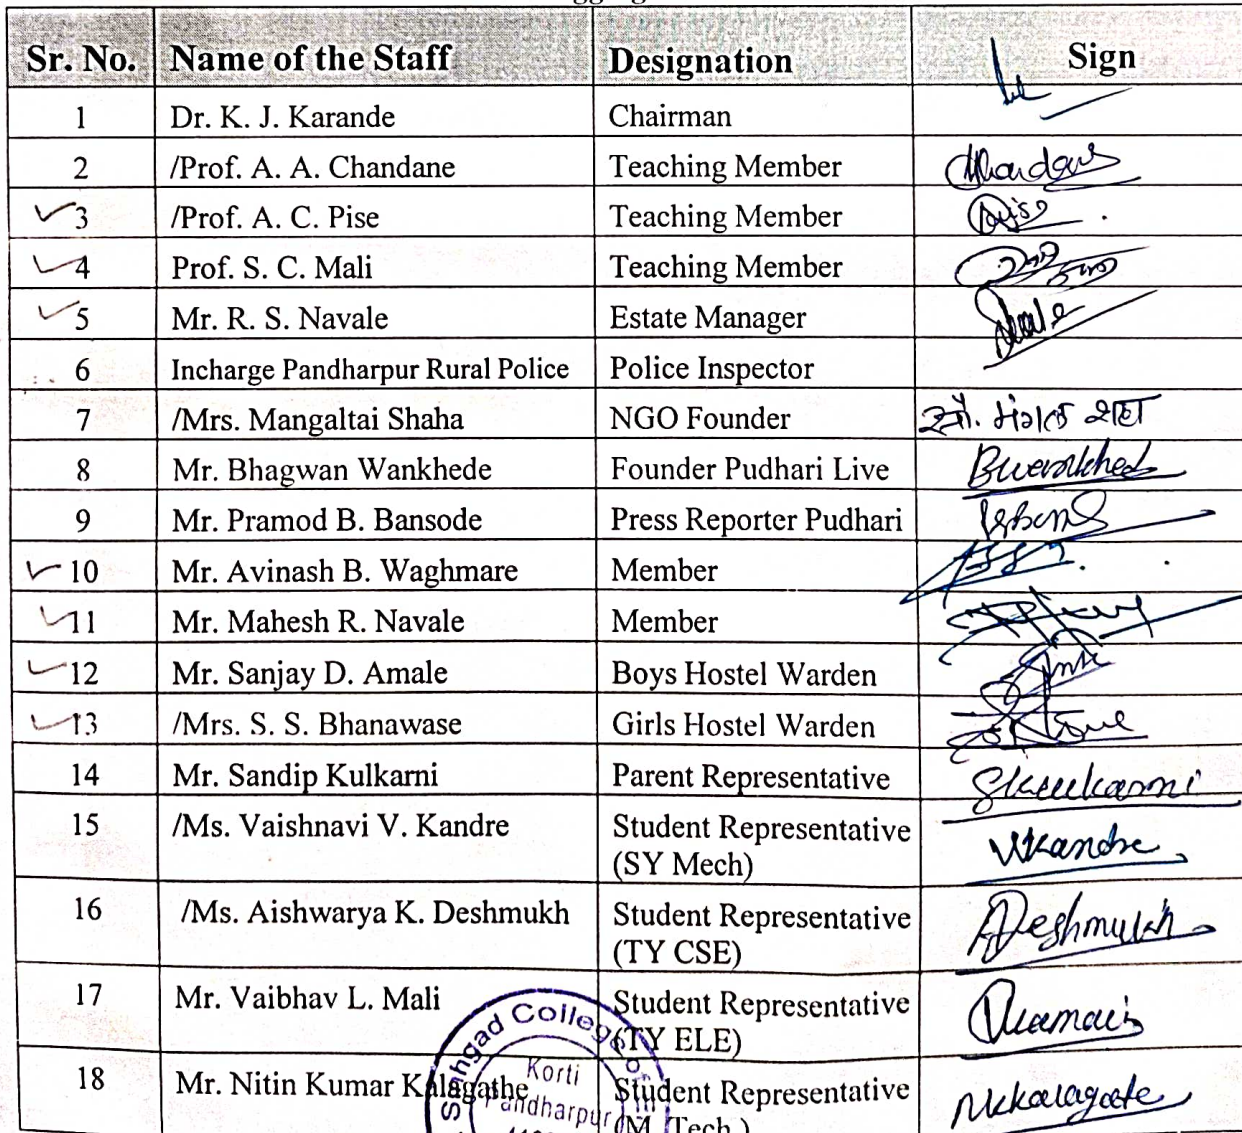 Sr. No. Name of the Staff Designation Sign
1 Dr. K. J. Karande Chairman
2 /Prof. A. A. Chandane Teaching Member
3 /Prof. A. C. Pise Teaching Member
4 Prof. S. C. Mali Teaching Member
5 Mr. R. S. Navale Estate Manager
6 Incharge Pandharpur Rural Police Police Inspector
7 /Mrs. Mangaltai Shaha NGO Founder सौ. मंगल शहा
8 Mr. Bhagwan Wankhede Founder Pudhari Live
9 Mr. Pramod B. Bansode Press Reporter Pudhari
10 Mr. Avinash B. Waghmare Member
11 Mr. Mahesh R. Navale Member
12 Mr. Sanjay D. Amale Boys Hostel Warden
13 /Mrs. S. S. Bhanawase Girls Hostel Warden
14 Mr. Sandip Kulkarni Parent Representative
15 /Ms. Vaishnavi V. Kandre Student Representative
(SY Mech)
VKandre
16 /Ms. Aishwarya K. Deshmukh Student Representative
(TY CSE)
ADeshmukh
17 Mr. Vaibhav L. Mali Student Representative
(TY ELE)
18 Mr. Nitin Kumar Kalagathe Student Representative
(M. Tech.)
College of
Korti
Pandharpur